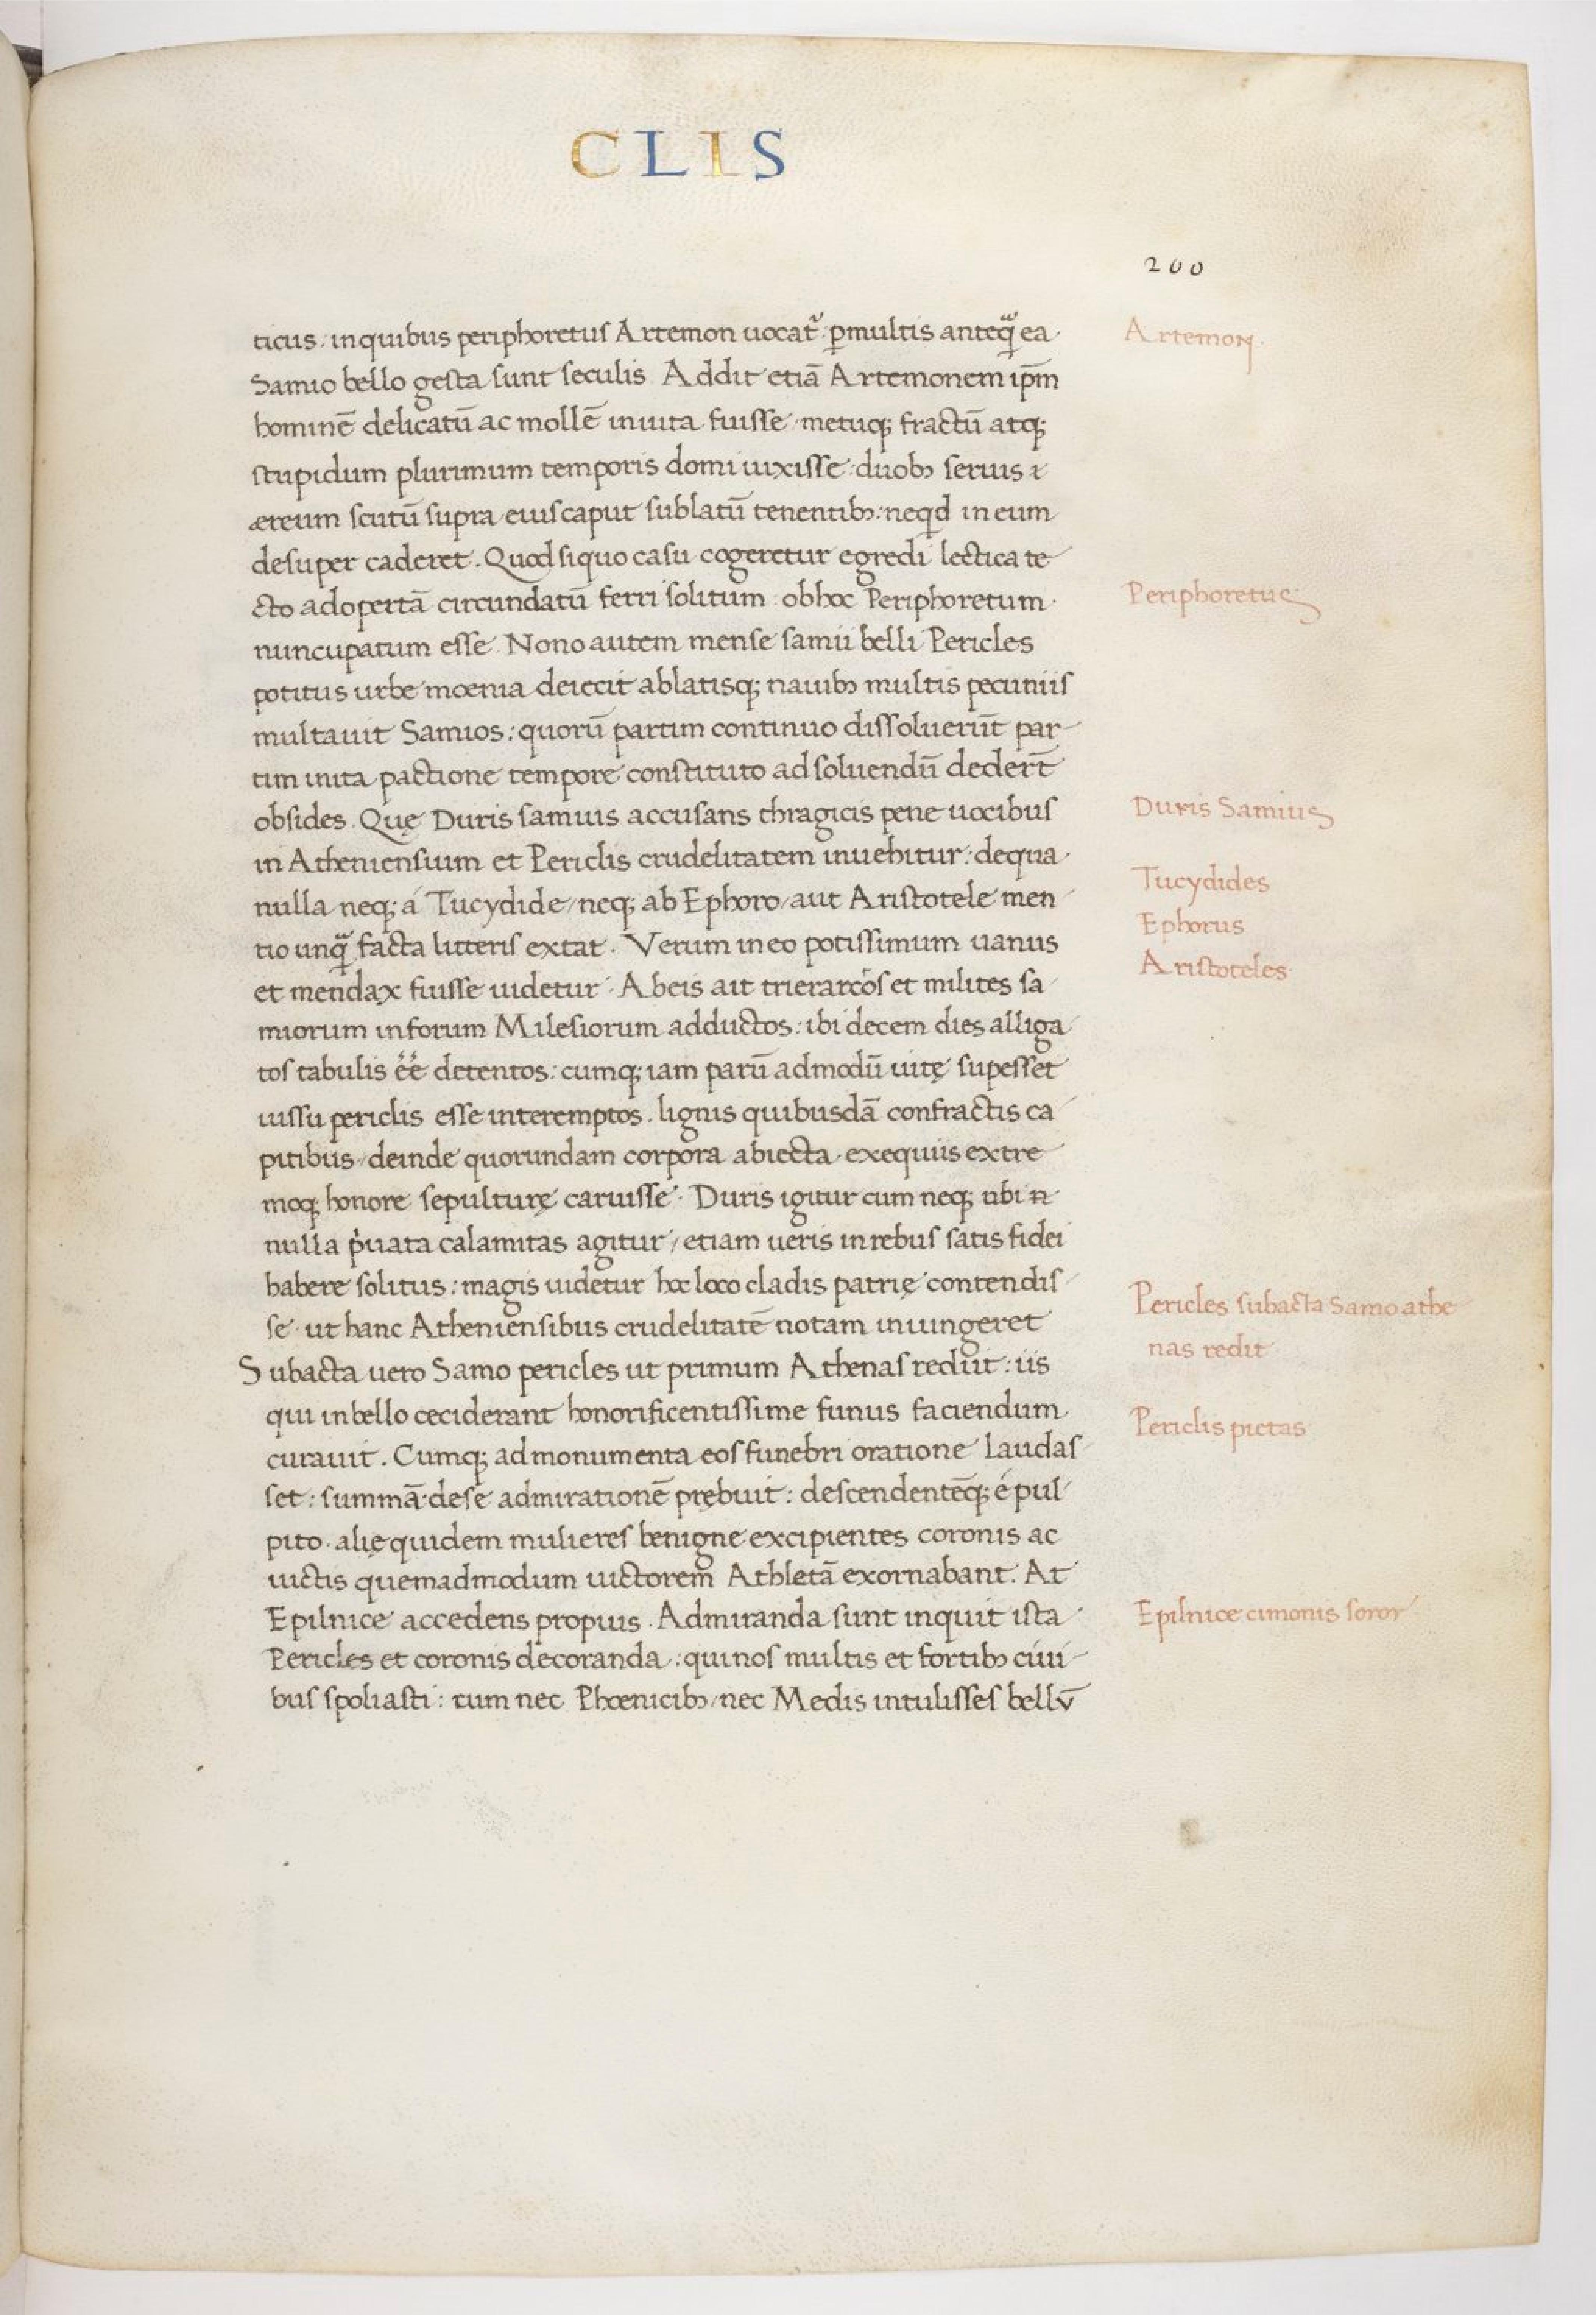 CLIS
200
ticus: in quibus periphoretus Artemon uocat᷑: ꝑmultis anteq̃ ea
Samio bello gesta sunt seculis Addit etiã Artemonem ip̃m
hominẽ delicatũ ac mollẽ in uita fuisse metuq; fractũ atq;
stupidum plurimum temporis domi uixisse: duobꝫ seruis &
æreum scutũ supra eius caput sublatũ tenentibꝫ: neqd in eum
desuper caderet. Quod siquo casu cogeretur egredi lectica te
cto adopertã circundatũ ferri solitum: ob hoc Periphoretum
nuncupatum esse. Nono autem mense samii belli Pericles
potitus urbe moenia deiecit ablatisq; nauibꝫ multis pecuniis
multauit Samios: quorũ partim continuo dissoluerũt par
tim inita pactione tempore constituto ad soluendũ dedert̃
obsides. Quę Duris samius accusans thragicis pene uocibus
in Atheniensium et Periclis crudelitatem inuehitur: de qua
nulla neq; á Tucydide/neq; ab Ephoro/aut Aristotele men
tio unq̃ facta litteris extat. Verum in eo potissimum uanus
et mendax fuisse uidetur. Ab eis ait trierarcos et milites sa
miorum in forum Milesiorum adductos: ibi decem dies alliga
tos tabulis ẽẽ detentos: cumq; iam parũ admodũ uitę supesset
iussu periclis esse interemptos. lignis quibusdã confractis ca
pitibus/deinde quorundam corpora abiecta exequiis extre
moq; honore sepulturę caruisse. Duris igitur cum neq; ubi n
nulla p̍uata calamitas agitur/etiam ueris in rebus satis fidei
habere solitus: magis uidetur hoc loco cladis patrię contendis
se ut hanc Atheniensibus crudelitatẽ notam iniungeret
Subacta uero Samo pericles ut primum Athenas rediit: iis
qui in bello ceciderant honorificentissime funus faciendum
curauit. Cumq; ad monumenta eos funebri oratione laudas
set: summã de se admirationẽ prębuit: descendentẽq; é pul
pito. alię quidem mulieres benigne excipientes coronis ac
uictis quemadmodum uictorem Athletã exornabant. At
Epilnice accedens propius. Admiranda sunt inquit ista
Pericles et coronis decoranda: qui nos multis et fortibꝫ ciui
bus spoliasti: cum nec Phoenicibꝫ/nec Medis intulisses bellũ
Artemon
Periphoretus
Duris Samius
Tucydides
Ephorus
Aristoteles
Pericles subacta Samo athe
nas redit
Periclis pietas
Epilnice cimonis soror